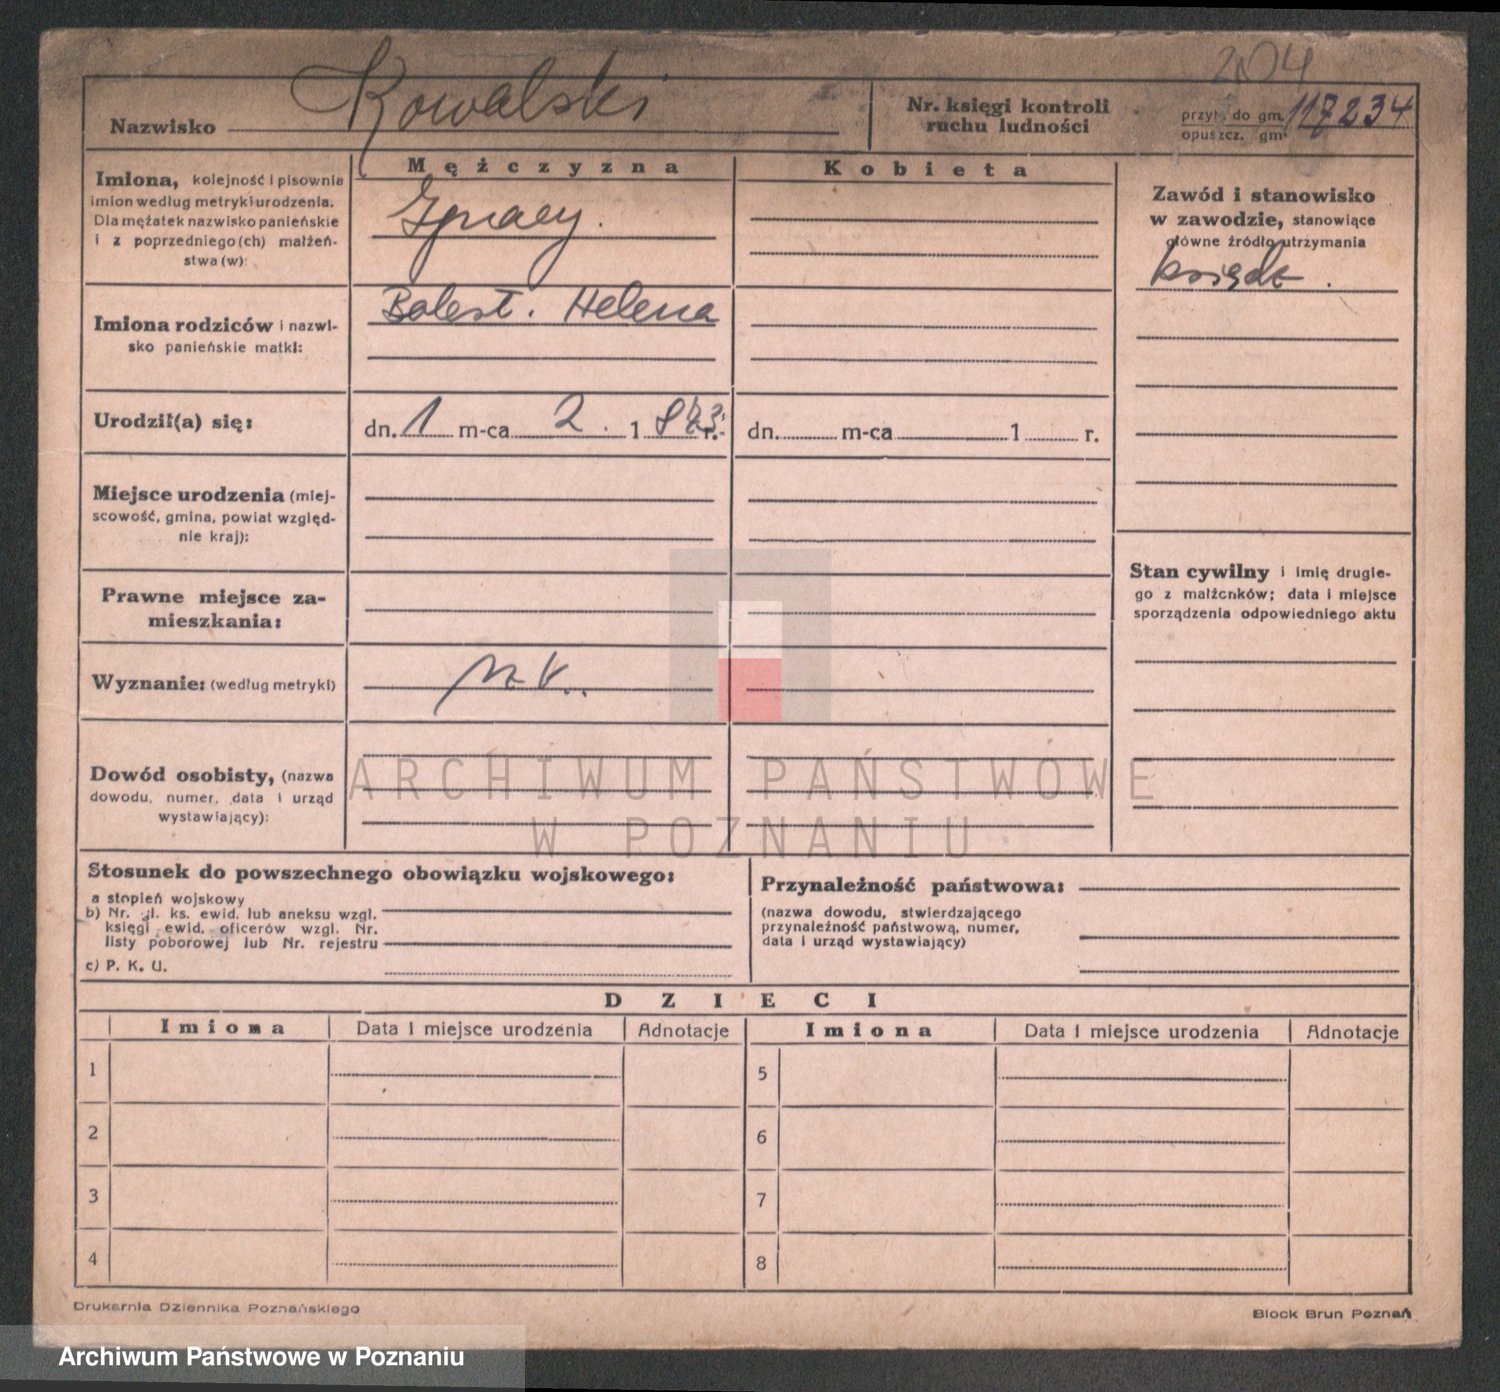 204
Kowalski
Nazwisko
Nr. księgi kontroli
ruchu ludności
przyb. do gm. 117234
opuszcz. gm.
Mężczyzna
Kobieta
Imiona, kolejność i pisownia
imion według metryki urodzenia.
Dla mężatek nazwisko panieńskie
i z poprzedniego (ch) małżeń-
stwa (w):
Ignacy.
Zawód i stanowisko
w zawodzie, stanowiące
główne źródło utrzymania
ksiądz.
Imiona rodziców i nazwi-
sko panieńskie matki:
Bolesł. Helena
Urodził(a) się:
dn. 1 m-ca 2. 1 r.
dn. m-ca 1 r.
Miejsce urodzenia (miej-
scowość, gmina, powiat względ-
nie kraj):
Stan cywilny i imię drugie-
go z małżonków; data i miejsce
sporządzenia odpowiedniego aktu
Prawne miejsce za-
mieszkania:
Wyznanie: (według metryki)
Dowód osobisty, (nazwa
dowodu, numer, data i urząd
wystawiający):
ARCHIWUM PAŃSTWOWE
W POZNANIU
Stosunek do powszechnego obowiązku wojskowego:
a stopień wojskowy
b) Nr. gl. ks. ewid. lub aneksu wzgl.
księgi ewid. oficerów wzgl. Nr.
listy poborowej lub Nr. rejestru
c) P. K. U.
Przynależność państwowa:
(nazwa dowodu, stwierdzającego
przynależność państwową, numer,
data i urząd wystawiający)
DZIECI
Imiona Data i miejsce urodzenia Adnotacje Imiona Data i miejsce urodzenia Adnotacje
1 5
2 6
3 7
4 8
Drukarnia Dziennika Poznańskiego
Block Brun Poznań
Archiwum Państwowe w Poznaniu